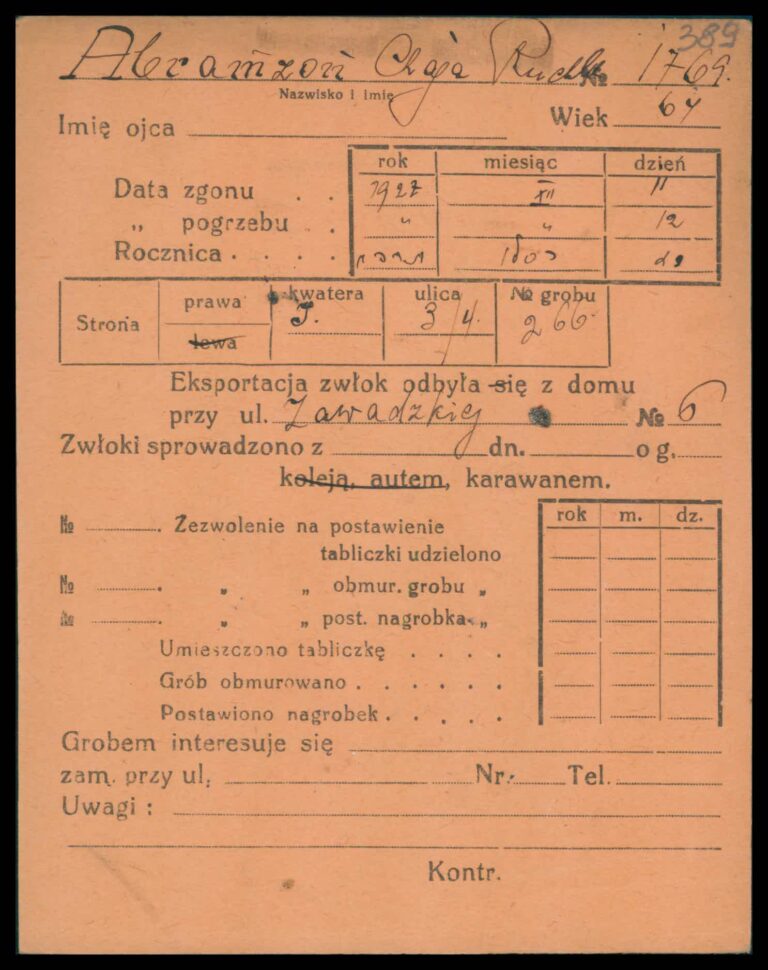 389
Abramzon Chaja Ruchla № 1769.
Nazwisko i imię
Wiek 67
Imię ojca
rok miesiąc dzień
Data zgonu . . 1927 XII 11
„ pogrzebu . . „ „ 12
Rocznica . . . .
Strona prawa lewa kwatera J. ulica 3/4. № grobu 266.
Eksportacja zwłok odbyła się z domu
przy ul. Zawadzkiej № 6
Zwłoki sprowadzono z dn. o g.
koleją, autem, karawanem.
rok m. dz.
№ . Zezwolenie na postawienie
tabliczki udzielono
№ . „ „ obmur. grobu „
№ . „ „ post. nagrobka „
Umieszczono tabliczkę . . . .
Grób obmurowano . . . . . .
Postawiono nagrobek . . . . .
Grobem interesuje się
zam. przy ul. Nr. Tel.
Uwagi :
Kontr.